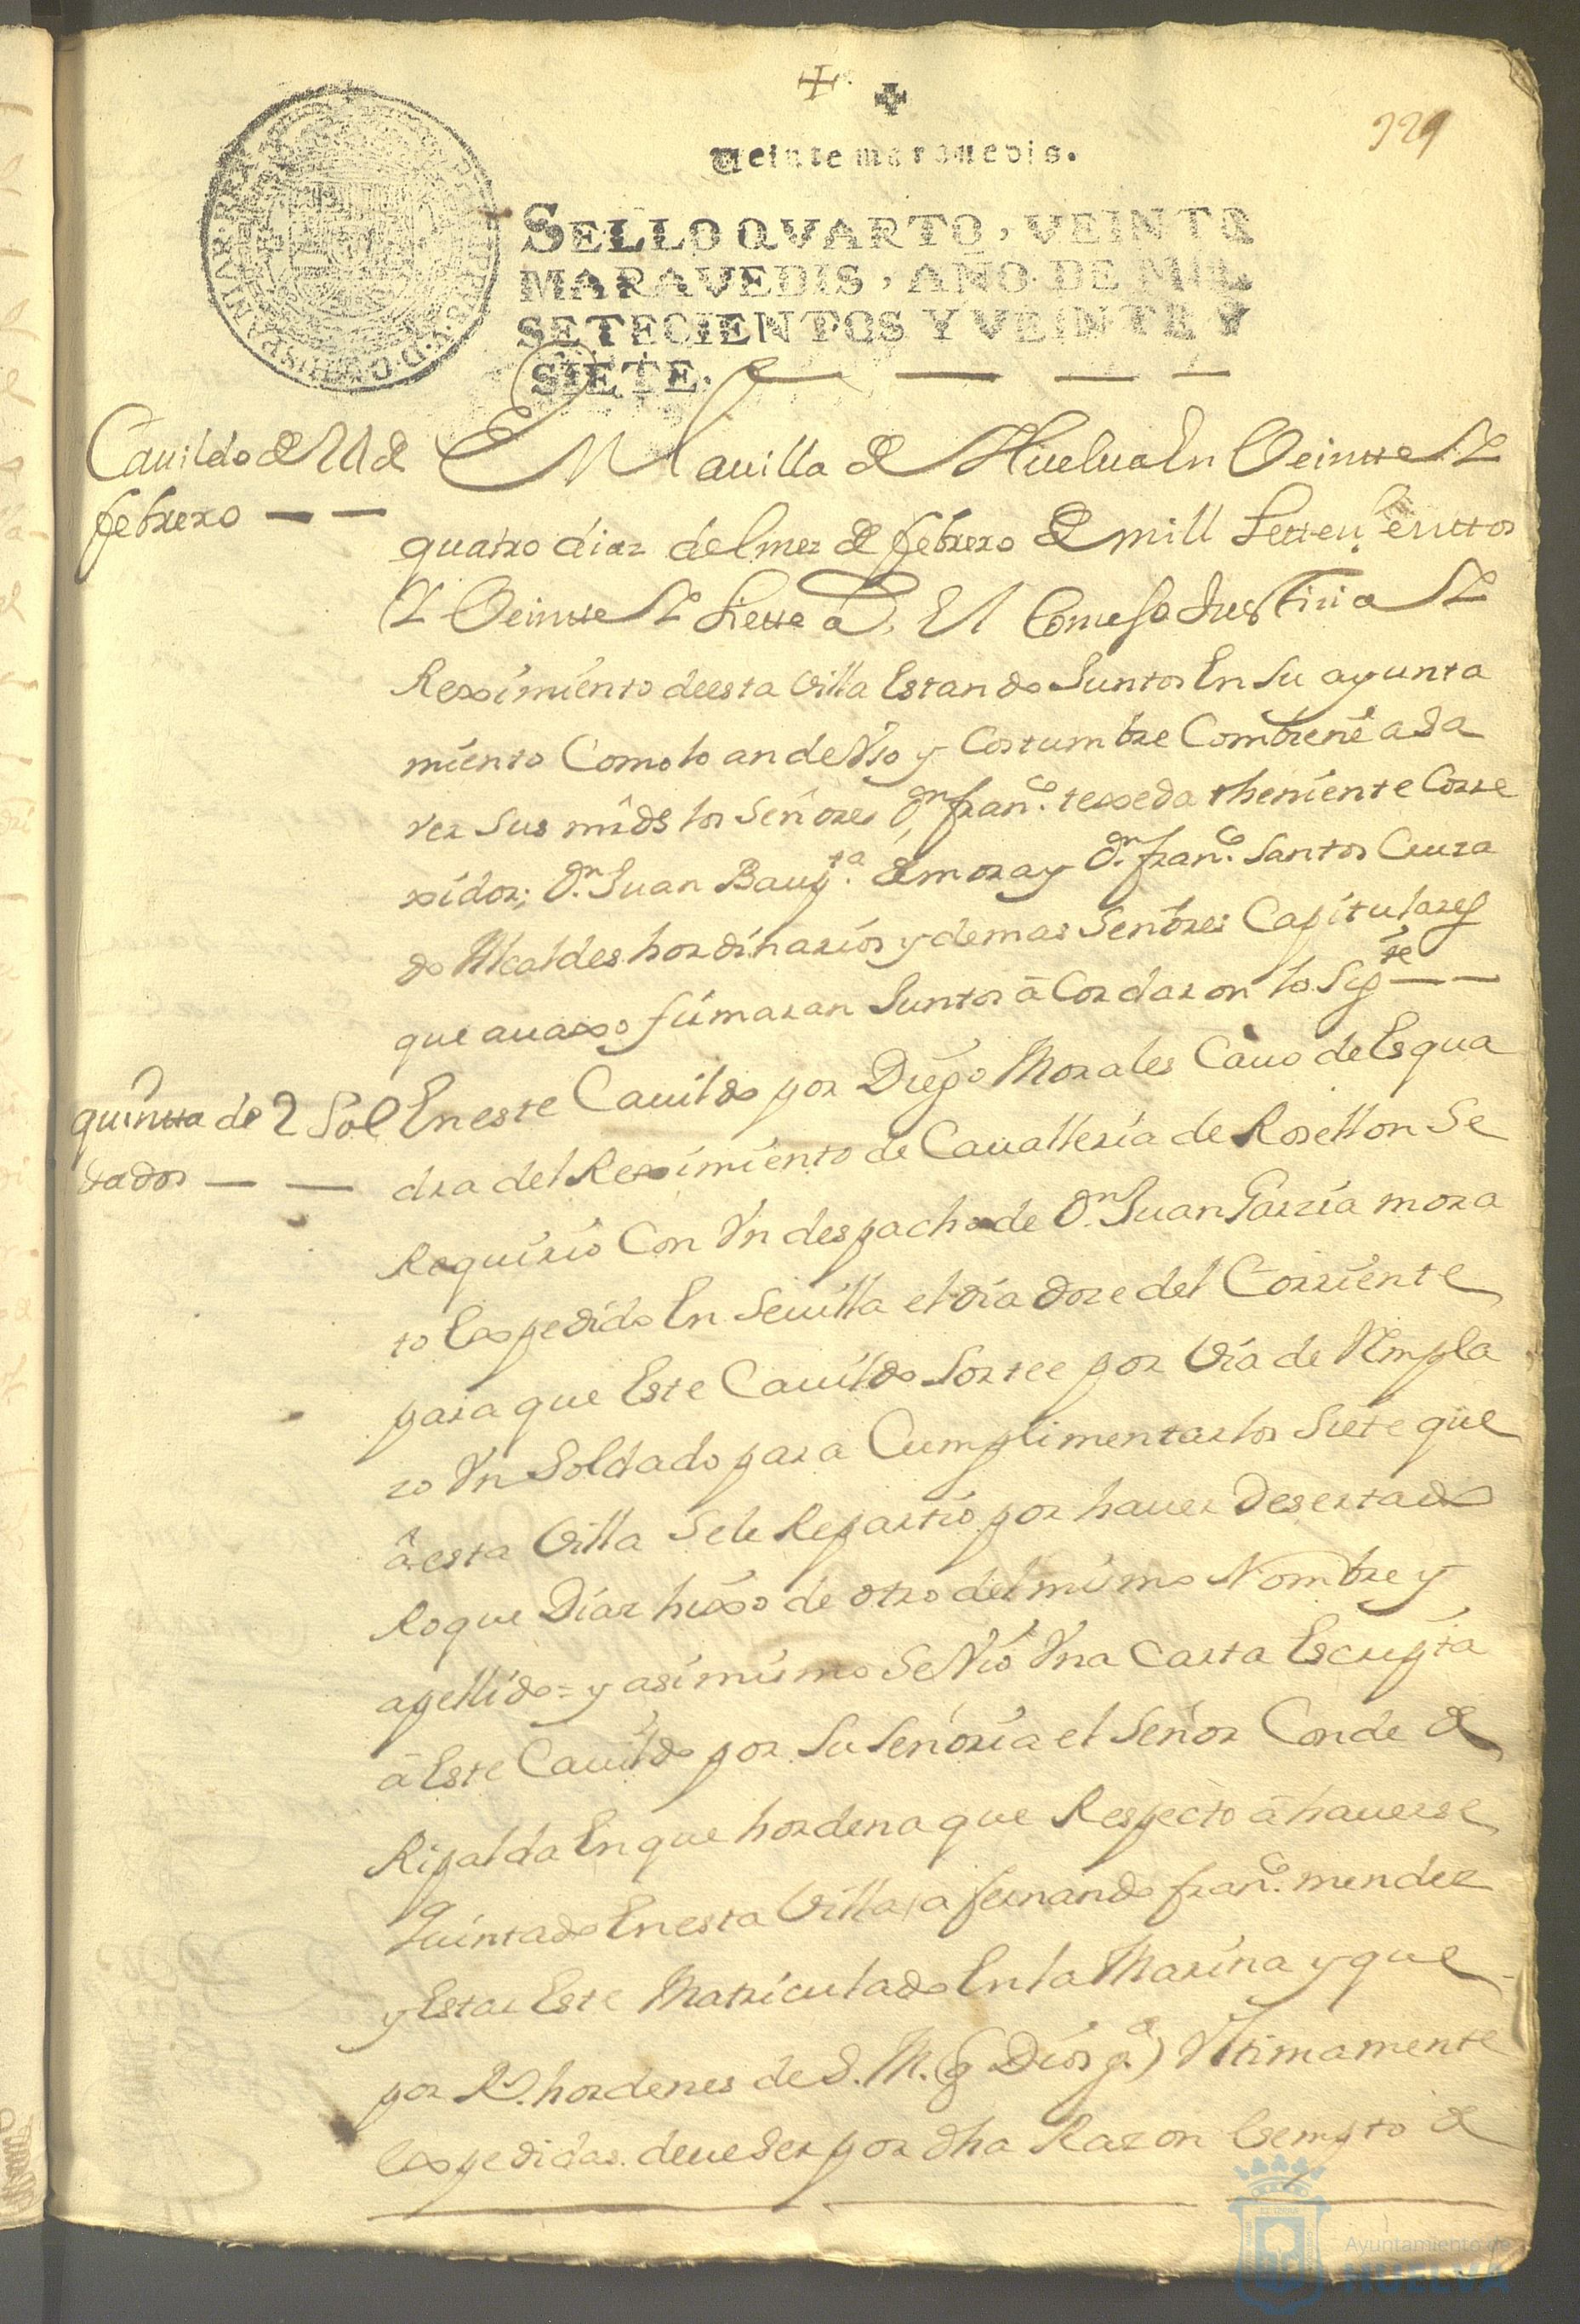 329
Veinte maravedis.
SELLO QVARTO, VEINTE
MARAVEDIS, AÑO DE MIL
SETECIENTOS Y VEINTE Y
SIETE.
Cauildo de 24 de
febrero
En la uilla de Huelua En Veintte Y
quatro dias del mes de febrero de mill Settez.tos
Y Veintte Y Siette a.s El Conzejo Justizia Y
Reximiento deesta Villa Estando Juntos En Su ayunta
miento Como lo an de Vso y Costumbre Combiene a sa
ver Sus mrds los Señores Dn. franco. texeda theniente Corre
xidor; Dn. Juan Bauptta. de mora y Dn. franco. Santos Cuura
do Alcaldes hordinarios y demas Señores Capitulares
que auaxo firmaran Juntos â Cordaron lo Sigte
quintta de 2 Sol
dados
En este Cauildo por Diego Morales Cauo de Esqua
dra del Reximiento de Cauallería de Rosellon Se
Requirio Con Vn despacho de Dn. Juan Garzia mora
to Expedido En Seuilla el dia doze del Corriente
para que Este Cauildo Sortee por Via de Rempla
zo Vn Soldado para Cumplimentar los Siete que
â esta Villa Se le Repartio por hauer Desertado
Roque Diaz hixo de otro del mismo Nombre y
apellido = y asimismo Se Vio Vna Carta Escripta
â Este Cauildo por Su Señoria el Señor Conde de
Ripalda En que hordena que Respecto â hauerse
quintado En esta Villa a fernando franco. mendez
y Estar Este Matriculado En la Marina y que
por Rs. hordenes de S. M. (q Dios ge.) Vltimamente
Expedidas. deue Ser por dha Razon Exempto de
Ayuntamiento de
HUELVA